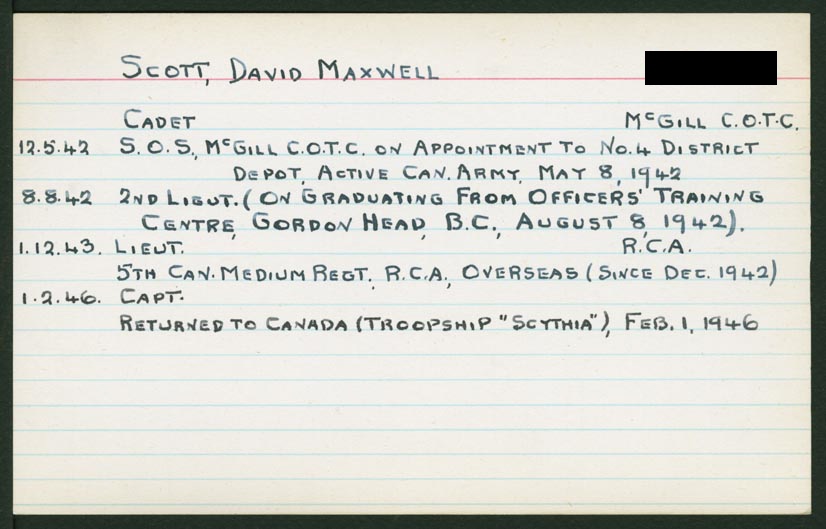 SCOTT, DAVID MAXWELL
CADET McGILL C.O.T.C.
12.5.42 S.O.S., McGILL C.O.T.C. ON APPOINTMENT TO No.4 DISTRICT
DEPOT, ACTIVE CAN. ARMY, MAY 8, 1942
8.8.42 2ND LIEUT. (ON GRADUATING FROM OFFICERS' TRAINING
CENTRE, GORDON HEAD, B.C., AUGUST 8, 1942).
1.12.43. LIEUT. R.C.A.
5TH CAN. MEDIUM REGT., R.C.A., OVERSEAS (SINCE DEC. 1942)
1.2.46. CAPT.
RETURNED TO CANADA (TROOPSHIP "SCYTHIA"), FEB. 1, 1946